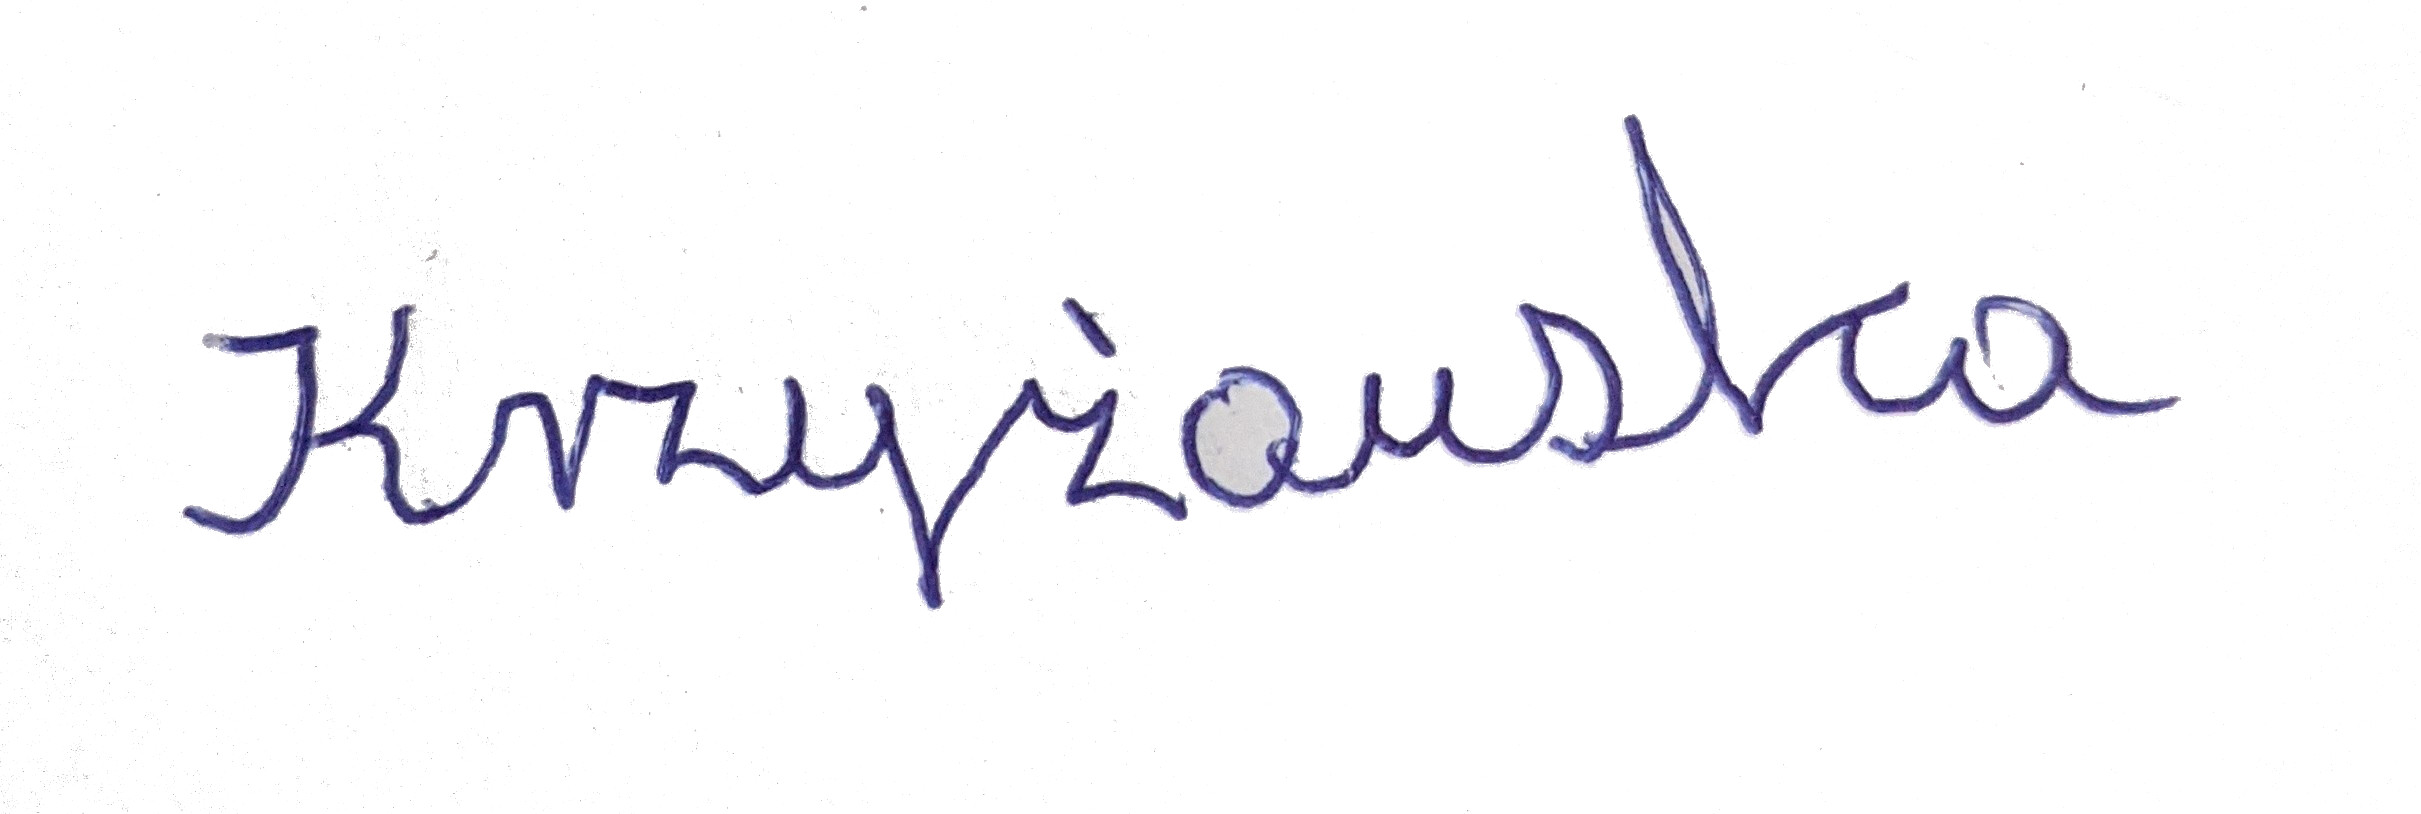 Krzyżawska